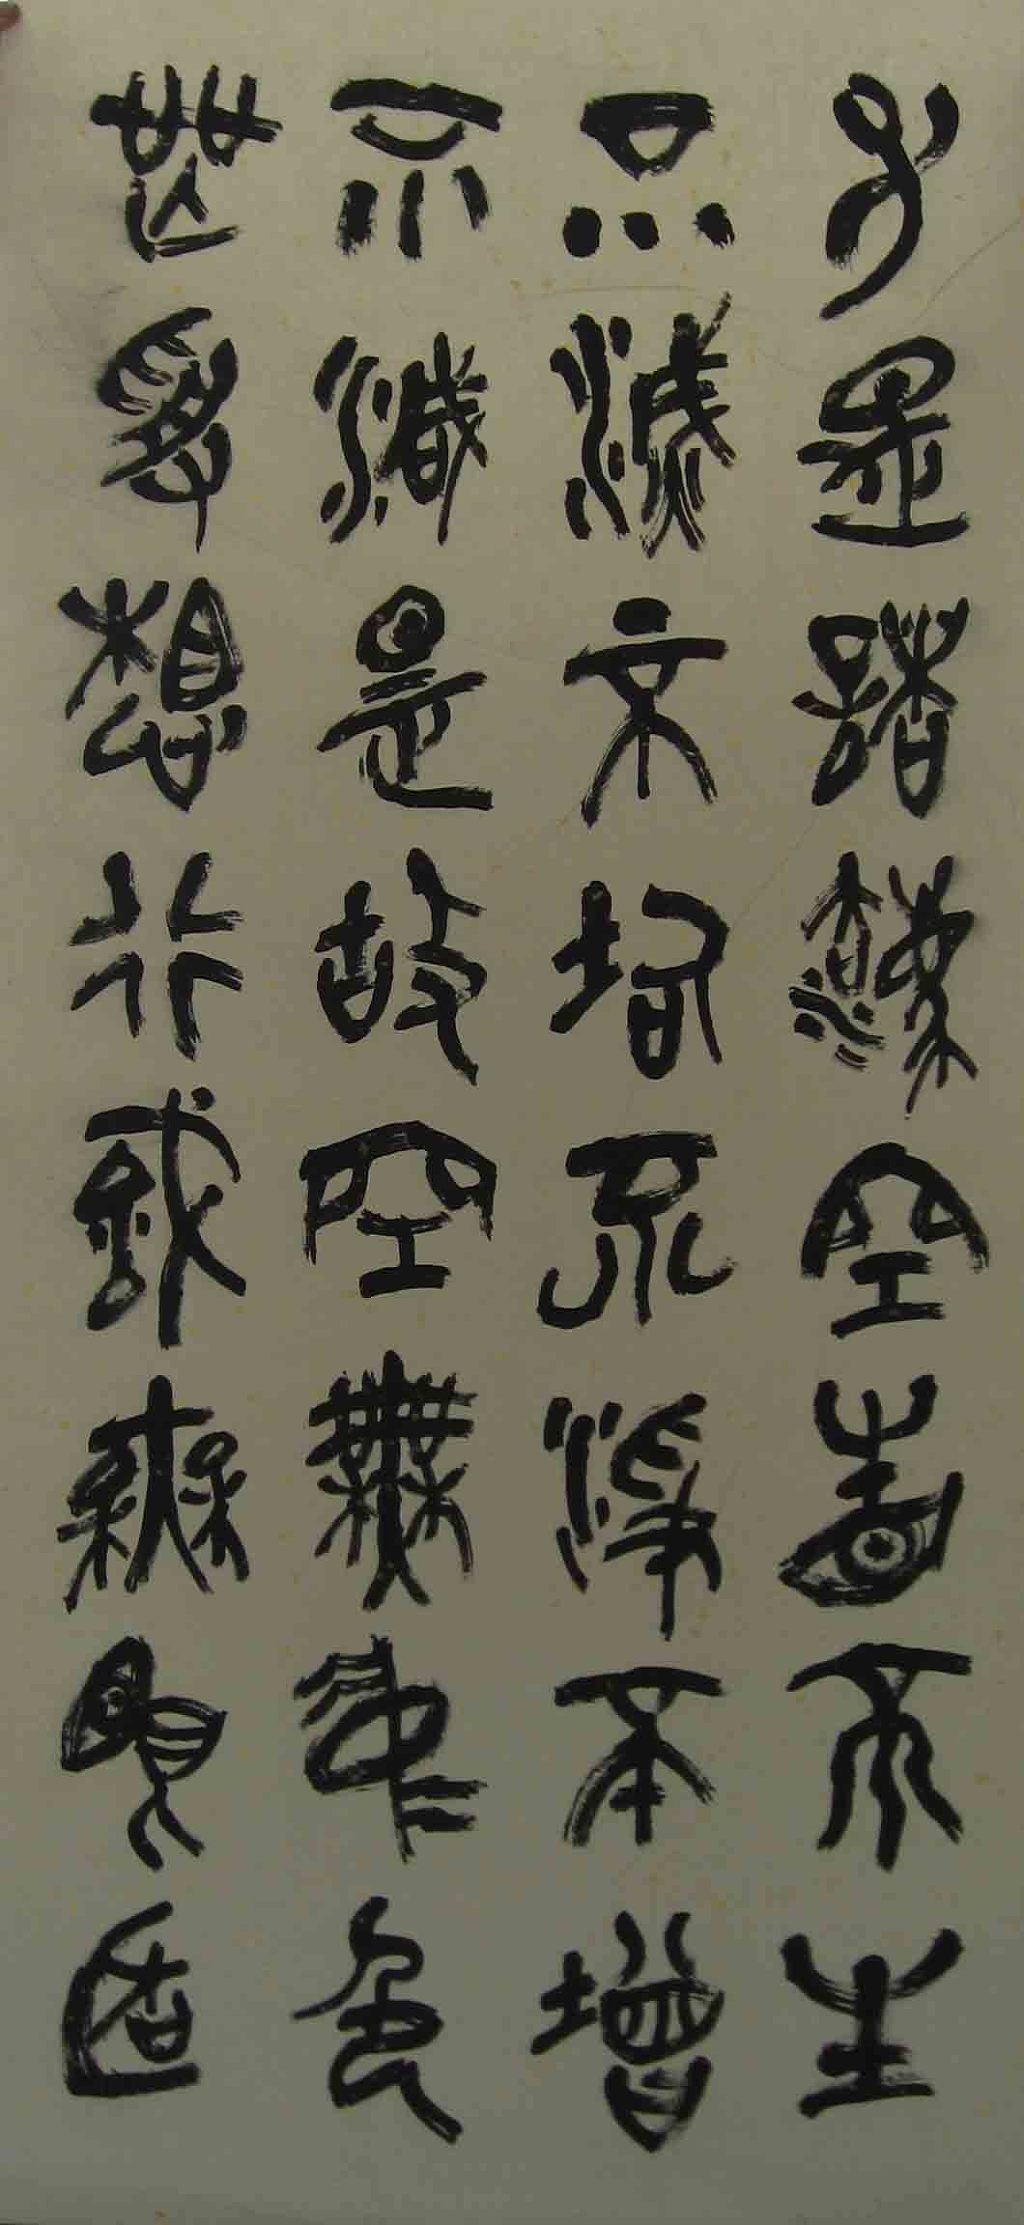 子是諸法空相不生
不滅不垢不淨不增
不減是故空無中色
無受想行識無眼